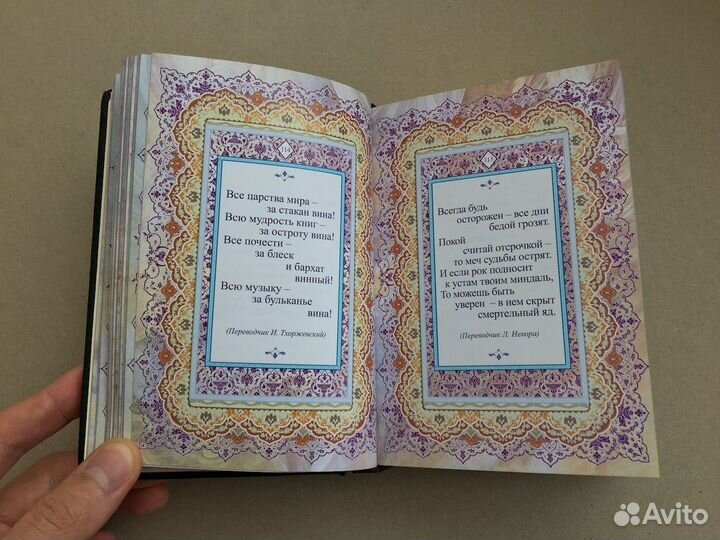 114
Все царства мира –
за стакан вина!
Всю мудрость книг –
за остроту вина!
Все почести –
за блеск
и бархат
винный!
Всю музыку –
за бульканье
вина!
(Переводчик И. Тхоржевский)
Всегда будь
осторожен – все дни
бедой грозят.
Покой
считай отсрочкой –
то меч судьбы острят.
И если рок подносит
к устам твоим миндаль,
То можешь быть
уверен – в нем скрыт
смертельный яд.
(Переводчик Л. Некора)
Avito